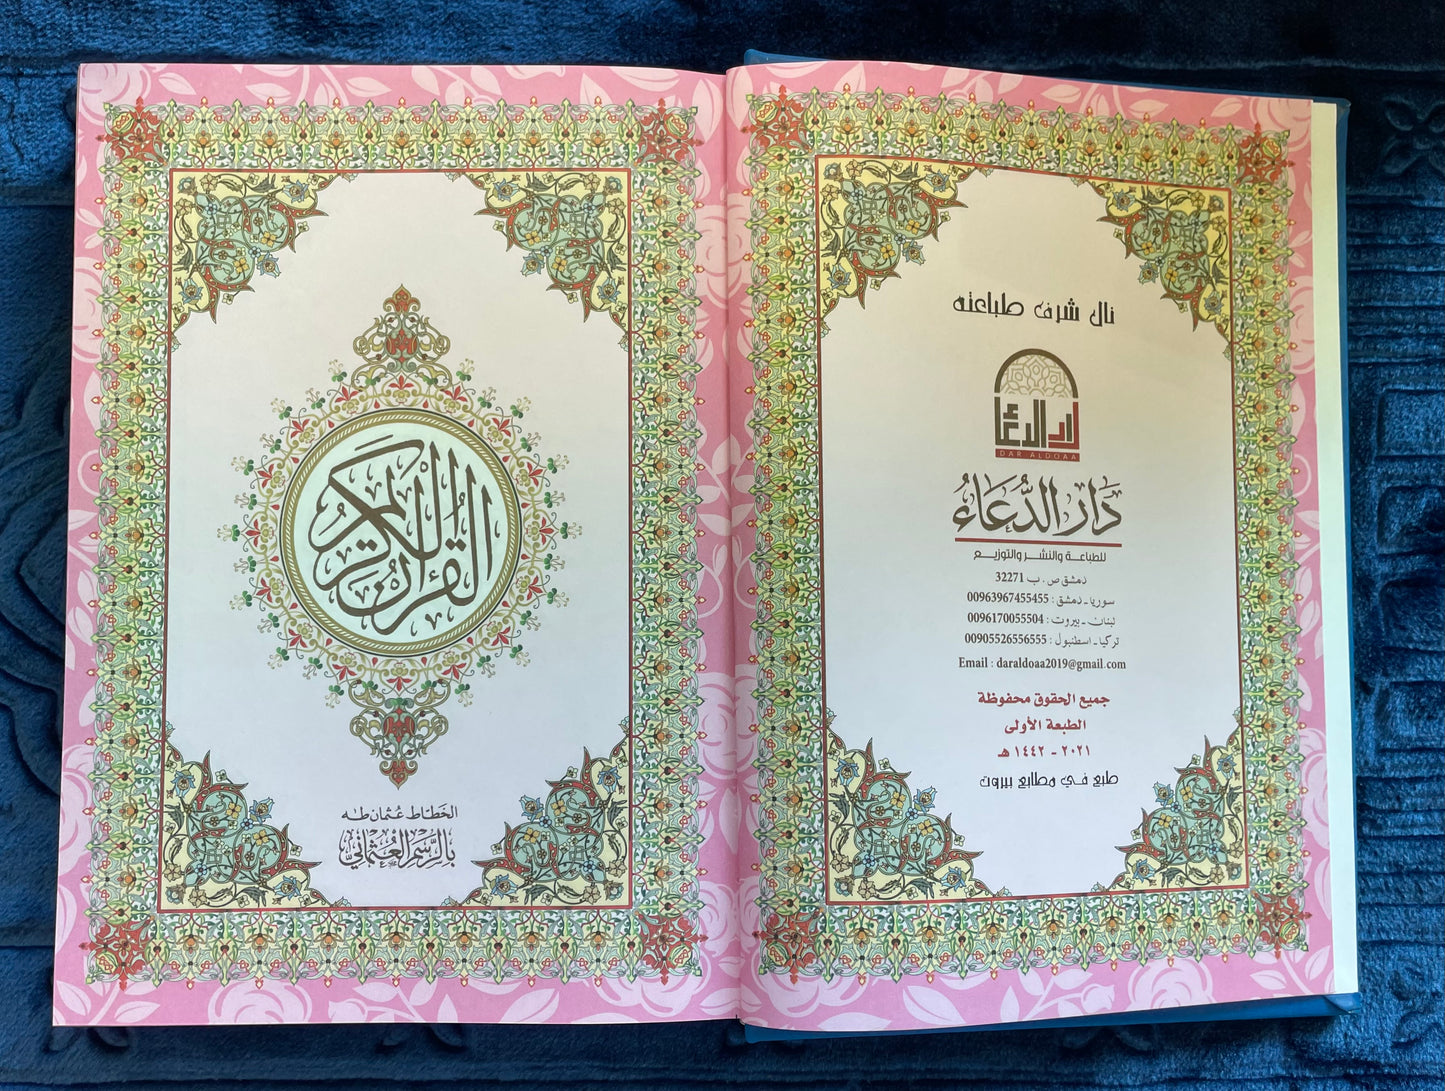 نال شرف طباعته
دار الدعاء
DAR ALDOAA
دَار الدُّعَاءُ
للطباعة والنشر والتوزيع
دمشق ص . ب 32271
سوريا - دمشق : 00963967455455
لبنان - بيروت : 0096170055504
تركيا - اسطنبول : 00905526556555
Email : daraldoaa2019@gmail.com
جميع الحقوق محفوظة
الطبعة الأولى
٢٠٢١ - ١٤٤٢ هـ
طبع في مطابع بيروت
القرآن الكريم
الخطاط عُثمان طه
بالرَّسْمِ العُثْمَانِي